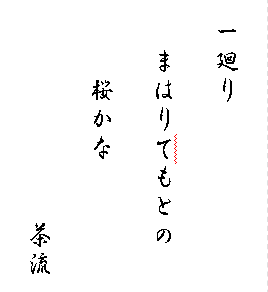 一廻り
まはりてもとの
桜かな
茶流